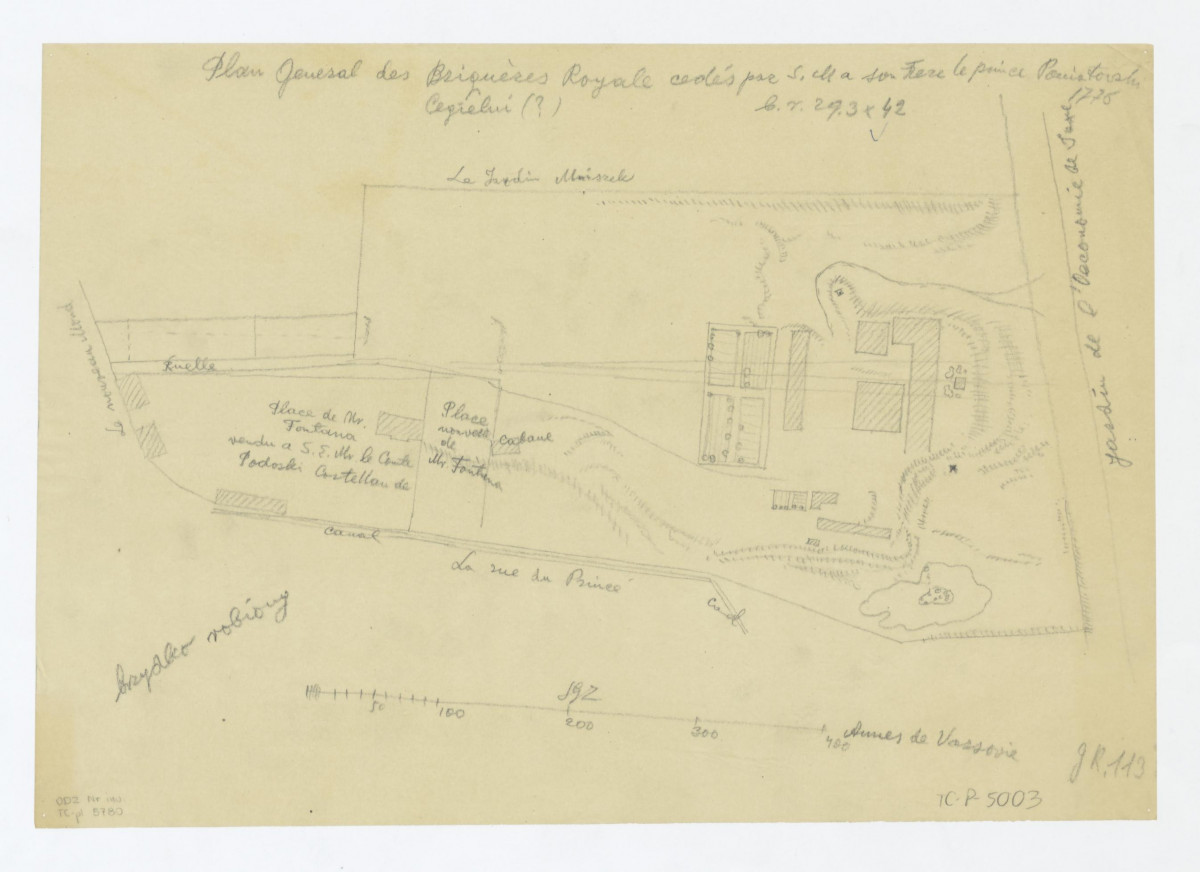 Plan General des Briquères Royale cedés par S. M a son Frere le prince Poniatovski
1776
Cegielni (?)
b. r. 29.3 x 42
Le Jardin Mniszek
Jardin de l'Oeconomie de Saxe
Le nouveau Mond
Ruelle
Place de Mr.
Fontana
vendu a S. E. Mr le Comte
Podoski Castellan de
Place
nouvelle
de
Mr. Fontana
Cabane
Canal
La rue du Prince
Canal
brzydko robiony
50
100
200
300
400
Aunes de Varsovie
JGZ
JR. 113
TC-P-5003
DDZ Nr inw.
TC-p 5780